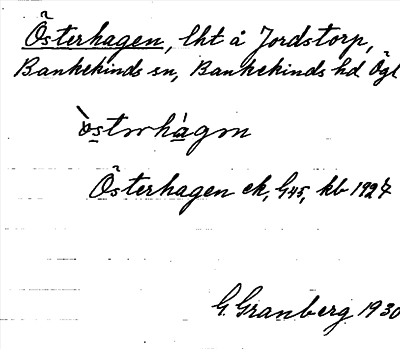 Österhagen, lht å Jordstorp,
Bankekinds sn, Bankekinds hd Ögl
Österhagen ek, G45, kb 1927
G. Granberg 1930